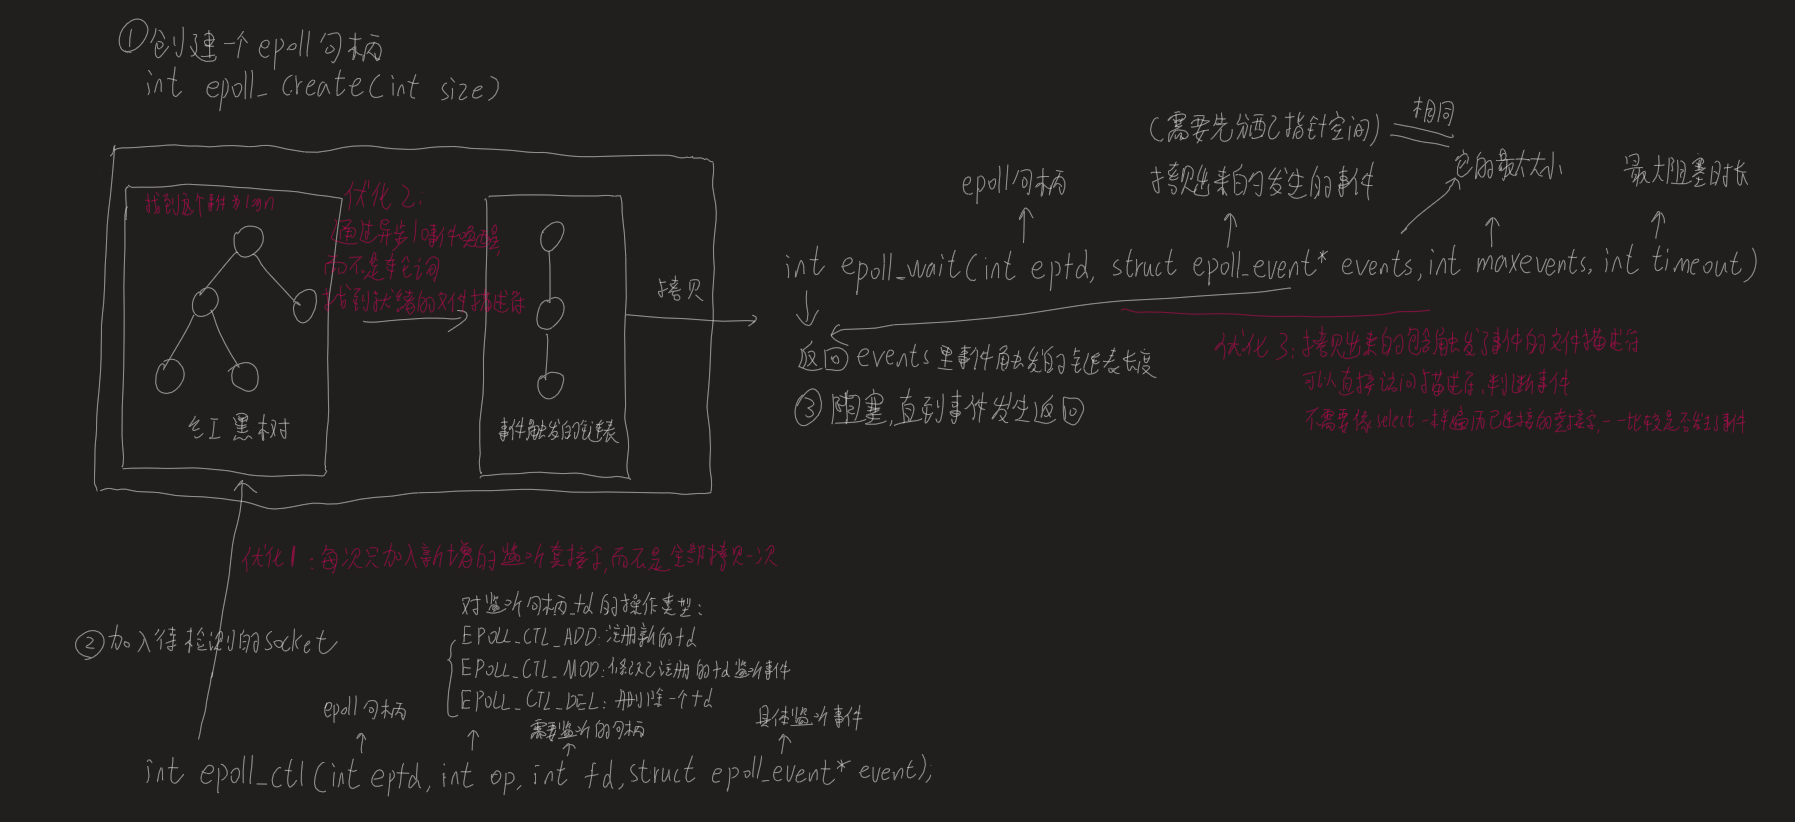 ①创建一个epoll句柄
int epoll_create(int size)
找到这个事件为logn
优化2:
通过异步IO事件唤醒,
而不是轮询
找到就绪的文件描述符
红黑树
事件触发的链表
拷贝
(需要先分配指针空间)
相同
epoll句柄
拷贝出来的的发生的事件
它的最大大小
最大阻塞时长
int epoll_wait(int epfd, struct epoll_event* events, int maxevents, int timeout)
返回events里事件触发的链表长度
③阻塞,直到事件发生返回
优化3:拷贝出来的包含触发了事件的文件描述符
可以直接访问描述符,判断事件
不需要像select一样遍历已连接的套接字,一一比较是否发生了事件
优化1:每次只加入新增的监听套接字,而不是全部拷贝一次
②加入待检测的socket
对监听句柄fd的操作类型:
EPOLL_CTL_ADD:注册新的fd
EPOLL_CTL_MOD:修改已注册的fd监听事件
EPOLL_CTL_DEL:删除一个fd
epoll句柄
需要监听的句柄
具体监听事件
int epoll_ctl(int epfd, int op, int fd, struct epoll_event* event);